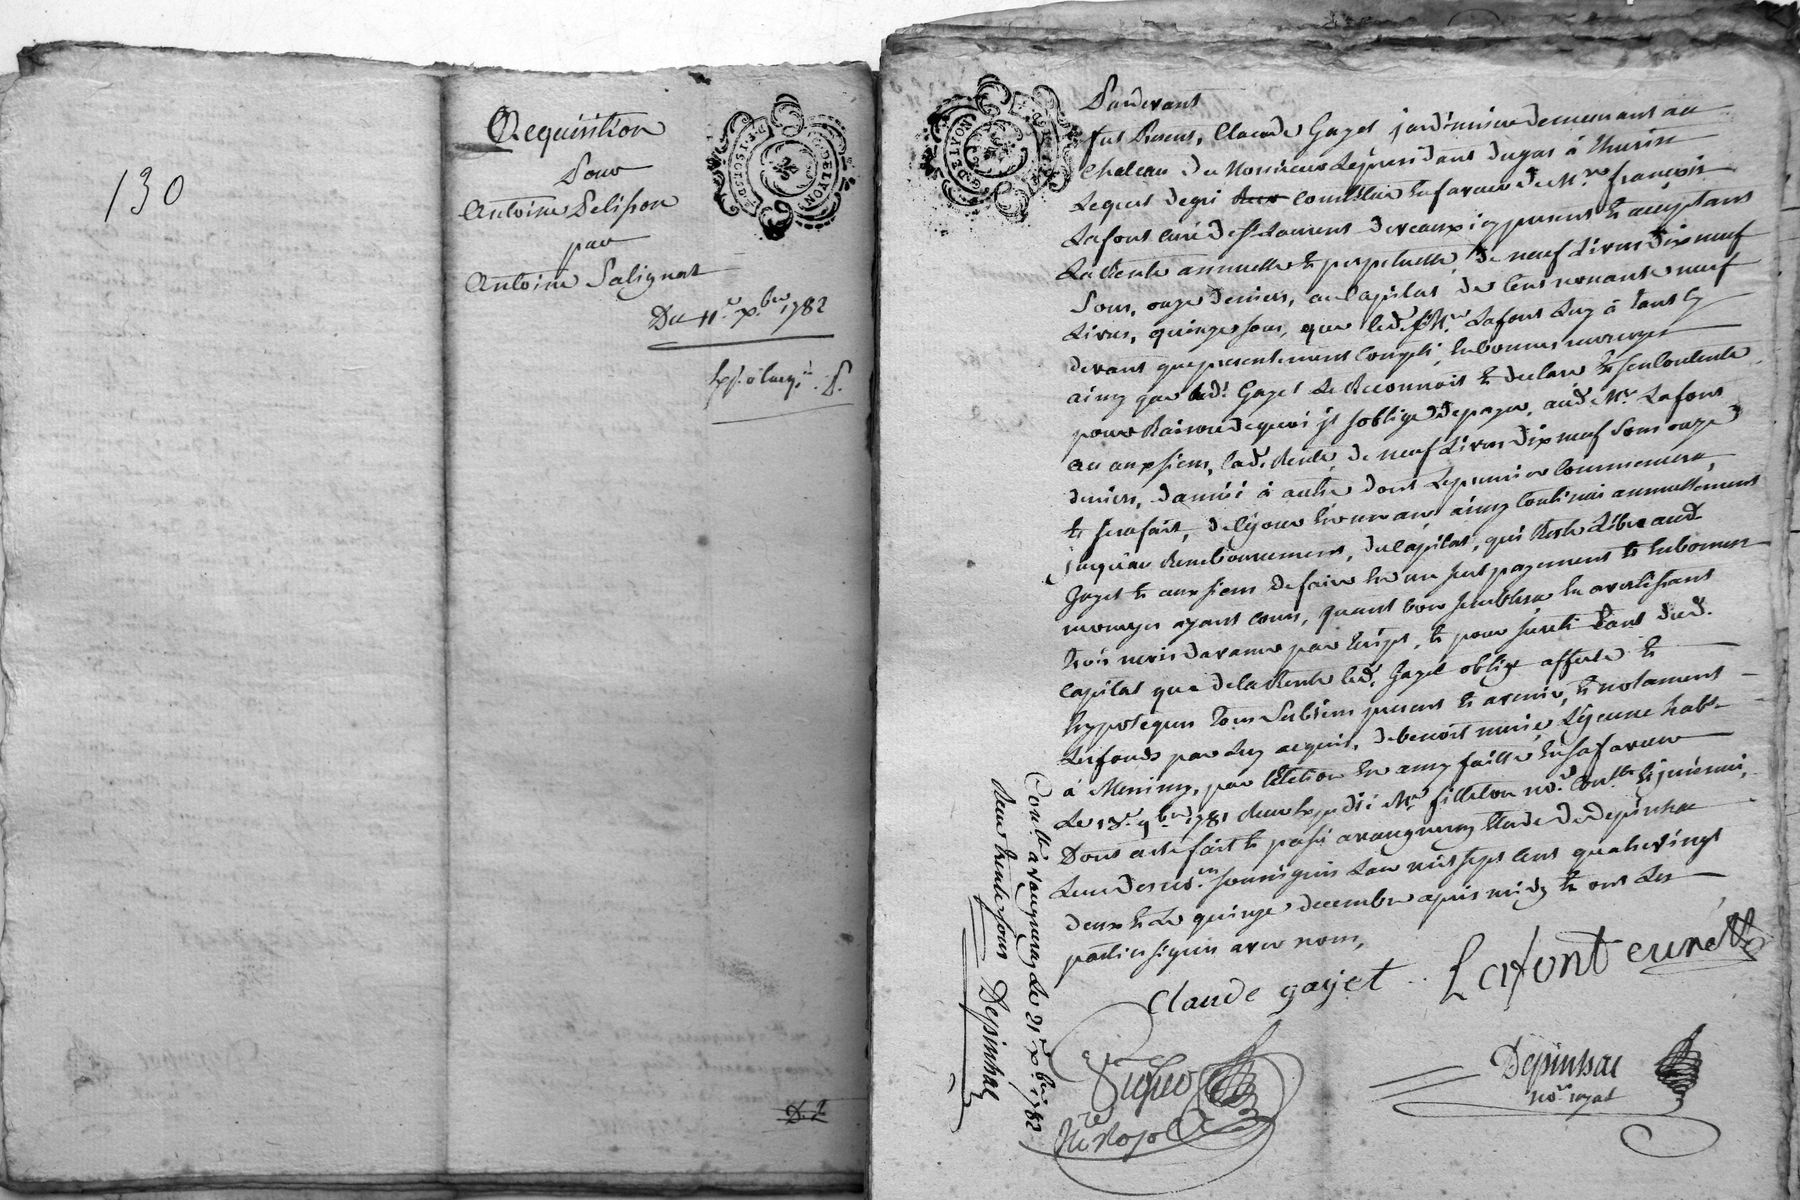 130
Requisition
Pour
Antoine Pelisson
par
Antoine Salignat
Du 11e xbre 1782
D. 2
G. DE LYON
Pardevant
fut Present, Claude Gayet jardinier demeurant au
Chateau de Monsieur Le president dugas à Thurin
Lequel degré constitue en faveur de Mre françois
Lafont curé de St Laurent de vaux icy present et acceptant
La Rente annuelle et perpetuelle, de neuf Livres dix neuf
Sous, onze deniers, au Capital de Cent nonante neuf
Livres, quinze sous, que led. Sr Mre Lafont Luy à tant cy
devant que presentement compté, en bonnes monoyes
ainsy que led. Gayet Le Reconnoit et declare et s'en contente
pour Raison de quoi jl s'oblige de payer, aud. Mre Lafont
ou aux siens, lad. Rente, de neuf Livres dix neuf Sous onze
deniers, d'année à autre dont Le premier commencera,
et sera fait, de ce jour en un an, ainsy continuer annuellement
jusqu'au Remboursement, du Capital, qui Reste Libre aud.
Gayet et aux siens de faire en un seul payement et en bonnes
monoyes ayant cours, quand bon semblera en avertissant
trois mois d'avance par Ecript, et pour sureté tant dud.
Capital que de la Rente led. Gayet oblige affecte et
hypoteque tous Ses biens presents et avenir, et notament
Les fonds par Luy acquis, de benoit Lejeune habt.
à Messimy, par
Le 13e 9bre 1781 Reçu Expedié Me no.
Dont acte fait et passé a vaugneray Etude de Depinhac
L'un des no.res soussignés L'an mil sept cent quatre vingt
deux et Le quinze decembre apres midy et ont Les
parties signés avec nous,
Claude gayet Lafont curé
Depinhac
nore royal
nre Royal
Conlle a vaugneray Le 21e xbre 1782
Reçu trente sous Depinhac